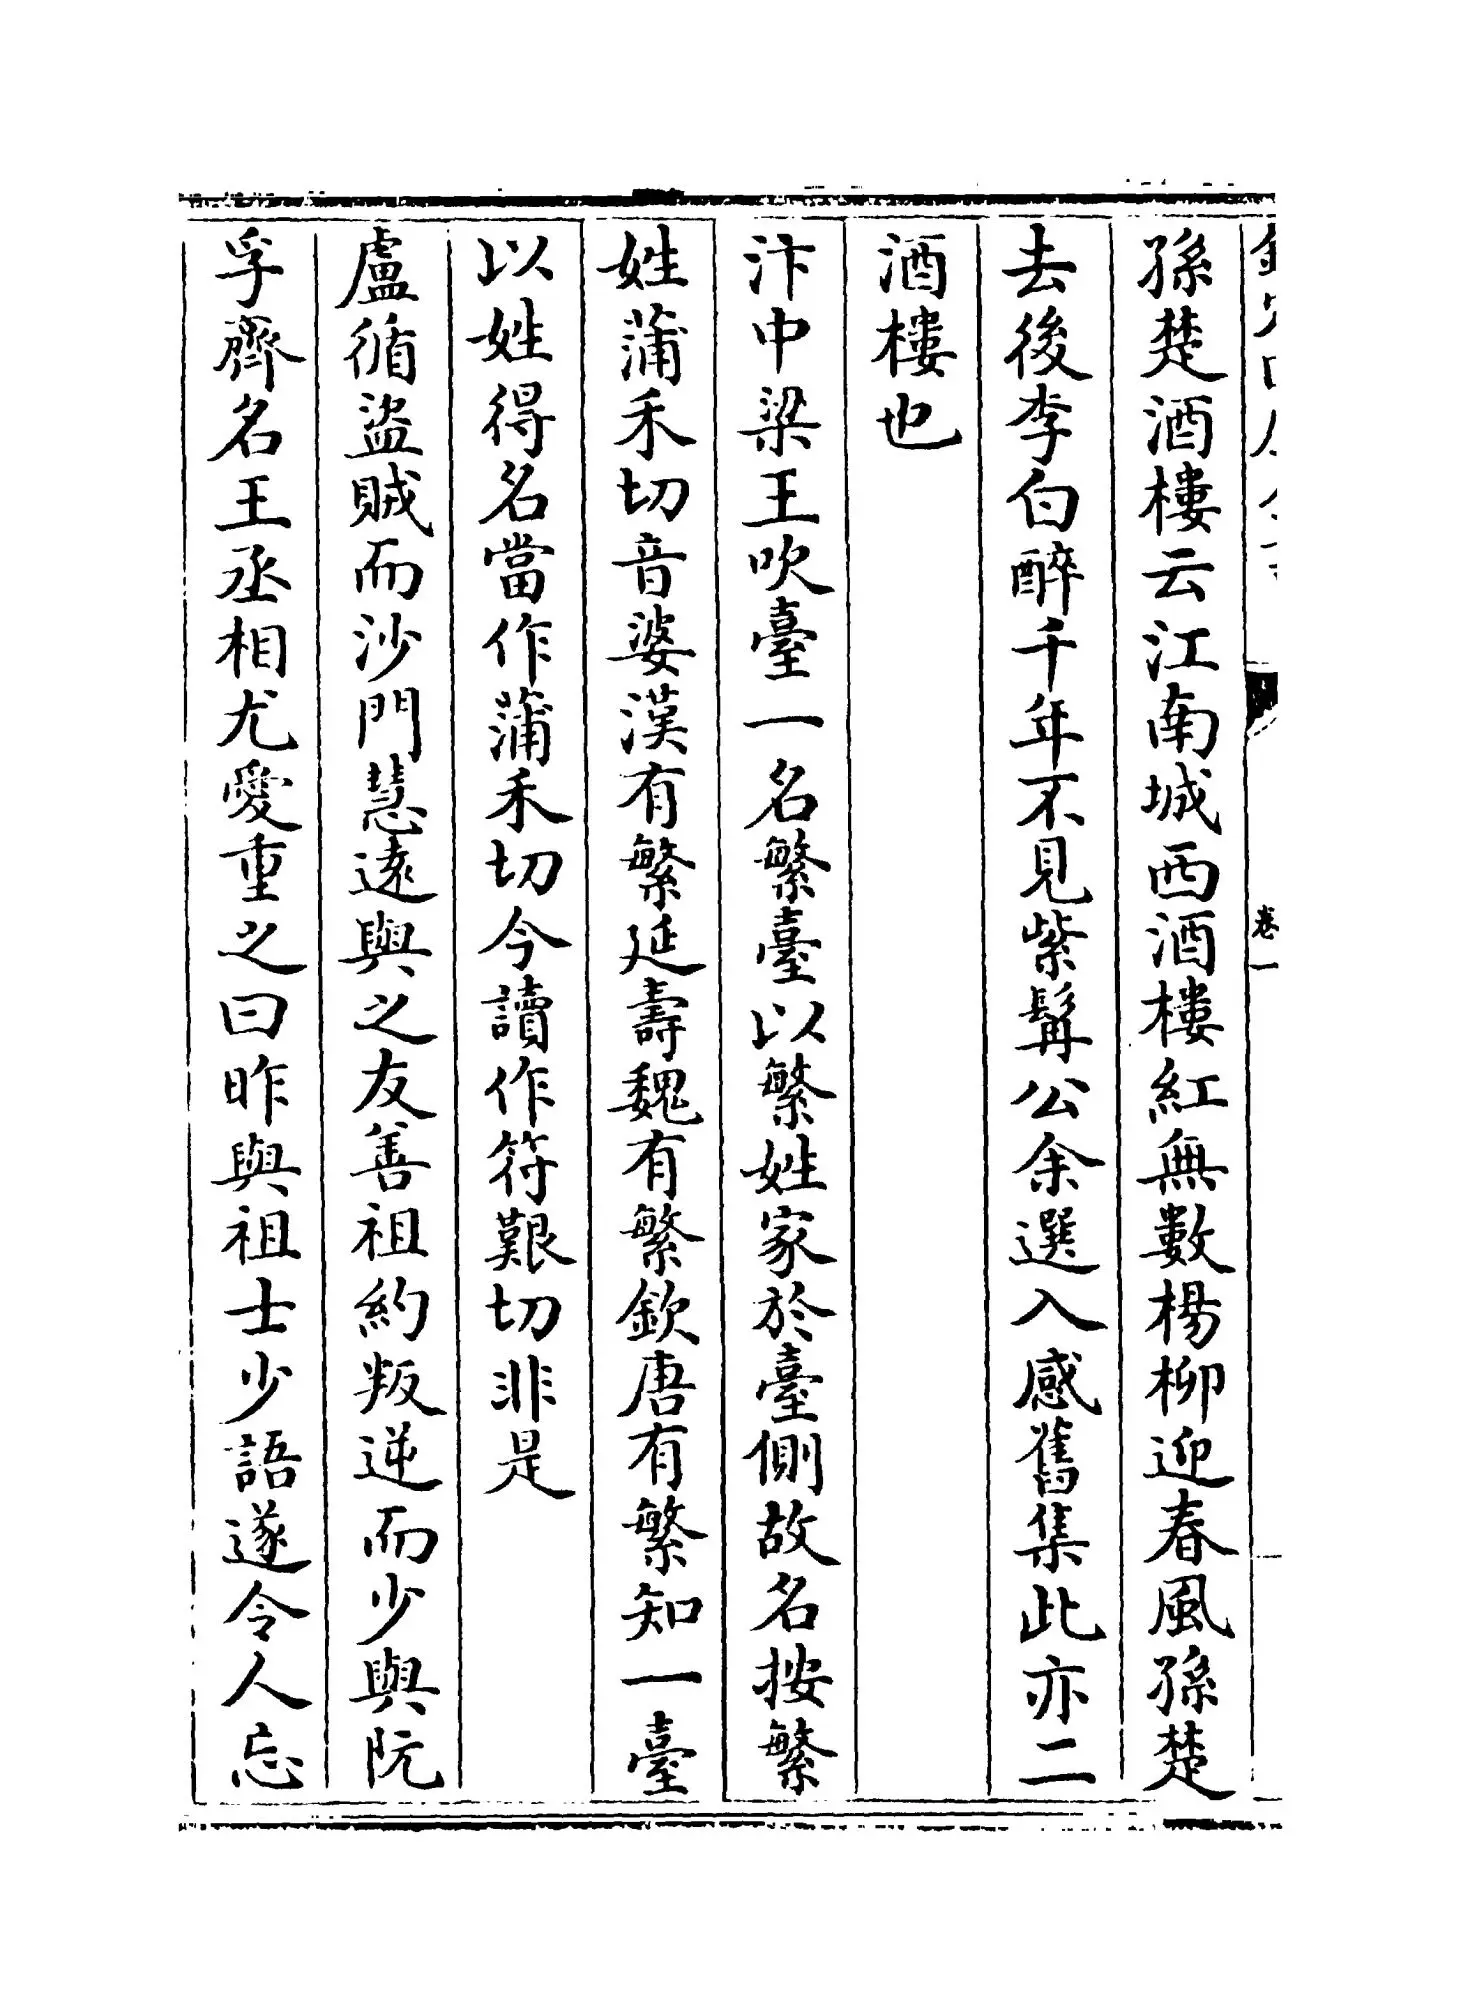 卷一
孫楚酒樓云江南城西酒樓紅無數楊柳迎春風孫楚
去後李白醉千年不見紫髯公余選入感舊集此亦二
酒樓也
汴中梁王吹臺一名繁臺以繁姓家於臺側故名按繁
姓蒲禾切音婆漢有繁延壽魏有繁欽唐有繁知一臺
以姓得名當作蒲禾切今讀作符艱切非是
盧循盜賊而沙門慧遠與之友善祖約叛逆而少與阮
孚齊名王丞相尤愛重之曰昨與祖士少語遂令人忘